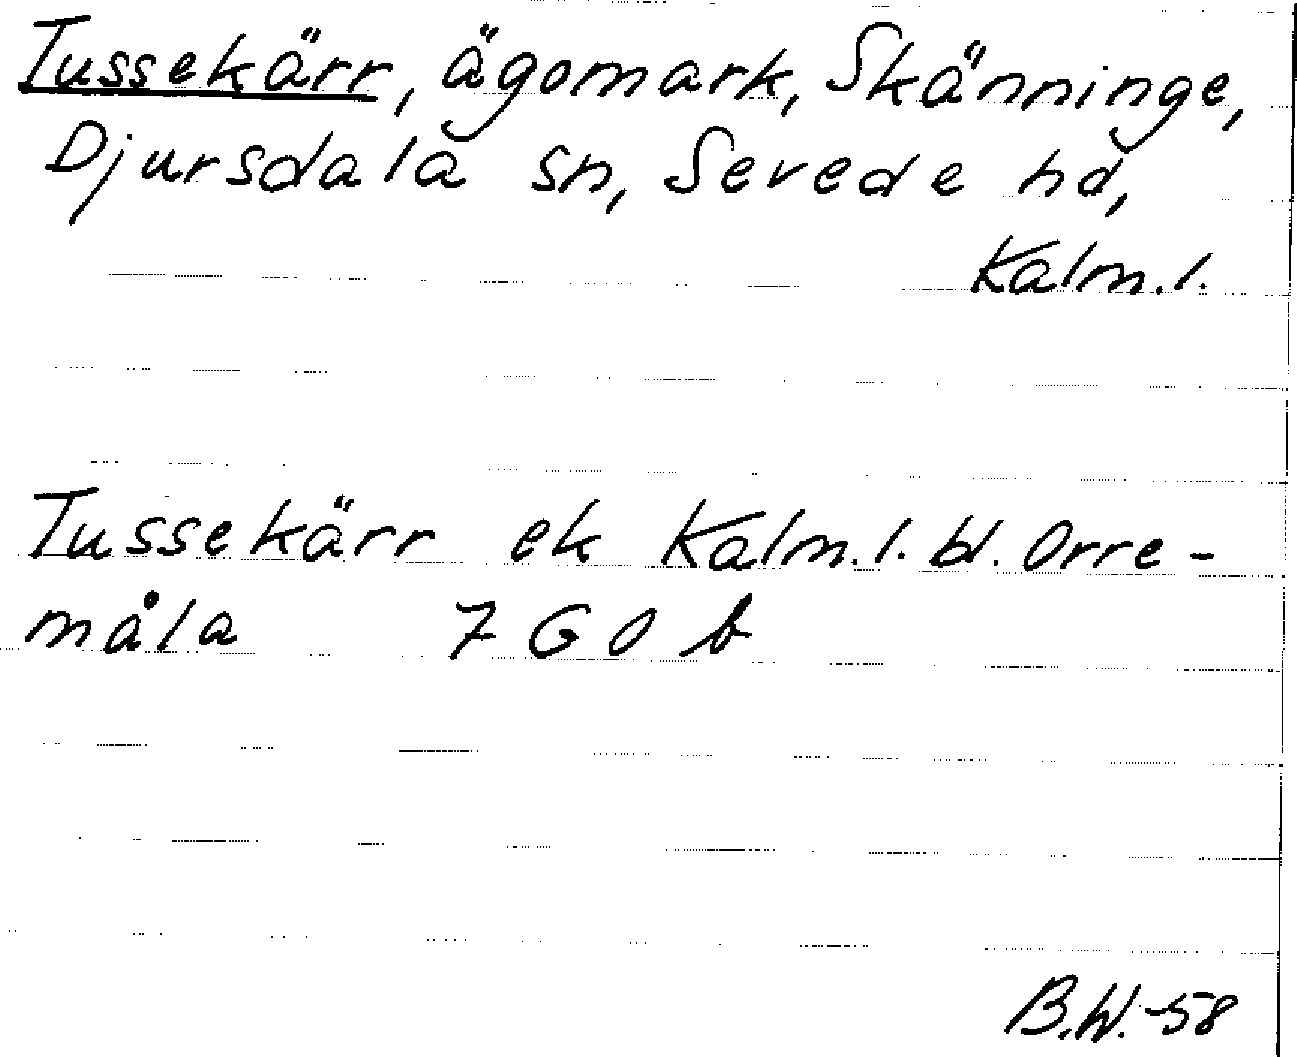 Tussekärr, ägomark, Skänninge,
Djursdala sn, Sevede hd,
Kalm.l.
Tussekärr ek Kalm.l. bl. Orre-
måla 7 G O b
B.W.-58